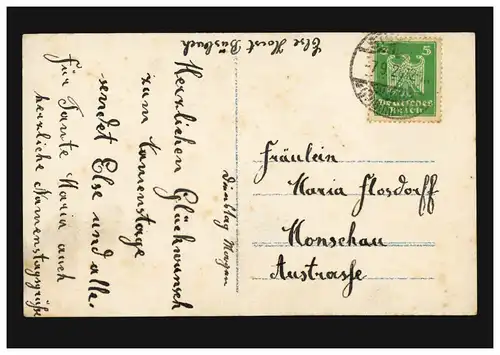 Else Horst Büsbach
Herzlichen Glückwunsch
zum Namenstage
sendet Else und alle.
Für Tante Maria auch
herzliche Namenstagsgrüße
Dienstag Morgen
5
Deutsches
Reich
Fräulein
Maria Flosdorff
Monschau
Austrasse